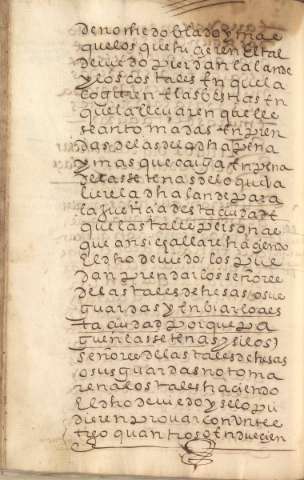 de nomedoblado y mas
que los que hizieren el tal
deviedo pierdan la lande
y los costales en que la
cogieren e las bestias en
que la llevaren que les
sean tomadas en pren
das de las dichas dha pena
y mas que caiga en pena
de las setenas de lo que va
liere la dha lande para
la justicia desta ciudad e
que las tales personas
que ansi se allare haciendo
el dho deviedo los pue
dan prendar los señores
de las tales dehesas o sus
guardas y enbiarlo a es
ta ciudad porque pa
guen las setenas y si los
señores de las tales dehesas
o sus guardas no toma
ren a los tales haciendo
el dho deviedo y se lo pu
dieren provar con un tes
tigo quantioso en duecien